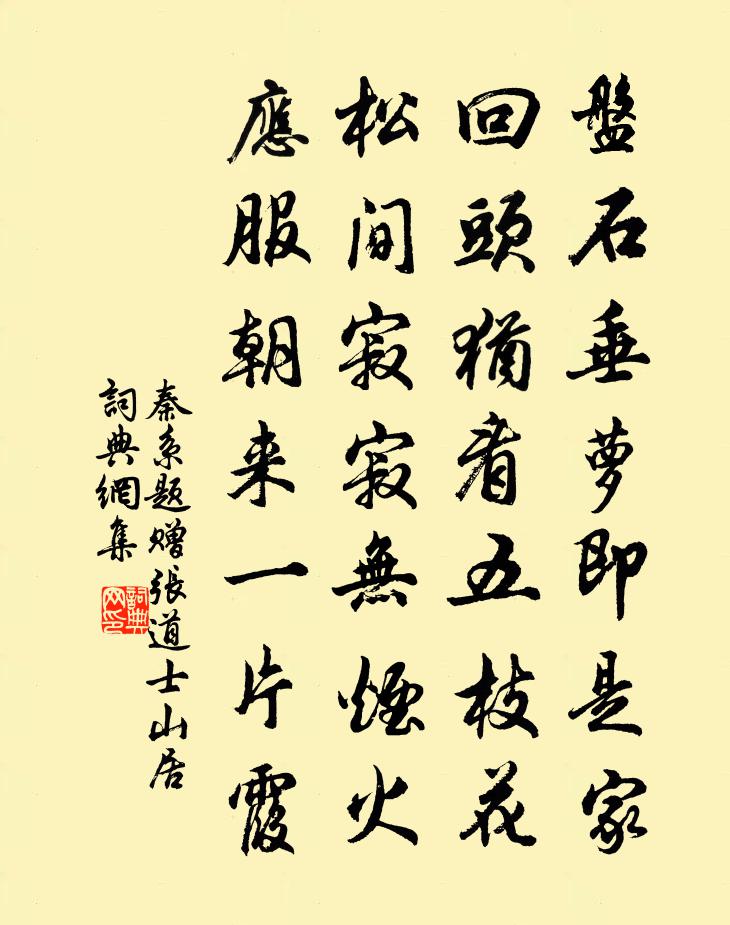 盤石垂萝即是家
回頭猶看五枝花
松间寂寂無煙火
應服朝来一片霞
秦系题赠張道士山居
詞典網集
詞典网印